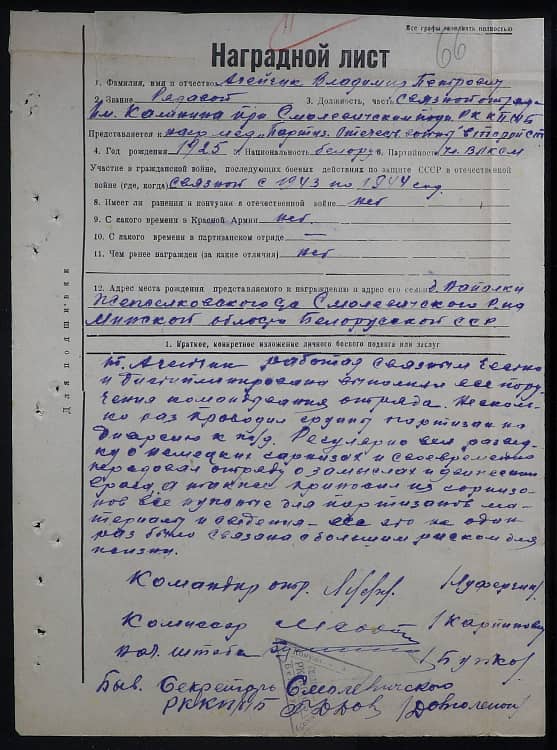 Все графы заполнять полностью
66
Наградной лист
1. Фамилия, имя и отчество Ачейчик Владимир Петрович
2. Звание Рядовой 3. Должность, часть связной отряда
им. Калинина при Смолевичском подп. РК КП(б)Б
Представляется к награ. мед. „Партиз. Отечеств. войны" II степени
4. Год рождения 1925 5. Национальность белорус 6. Партийность чл. ВЛКСМ
Участие в гражданской войне, последующих боевых действиях по защите СССР и отечественной
войне (где, когда) связной с 1943 по 1944 год.
8. Имеет ли ранения и контузии в отечественной войне нет
9. С какого времени в Красной Армии нет.
10. С какого времени в партизанском отряде —
11. Чем ранее награжден (за какие отличия) нет
12. Адрес места рождения представляемого к награждению и адрес его семьи д.
с/са Смолевичского р-на
Минской области Белорусской ССР.
Для подшивки
1. Краткое, конкретное изложение личного боевого подвига или заслуг
т. Ачейчик работая связным честно
и дисциплинировано выполнял все пору-
чения командования отряда. Несколь-
ко раз проводил группу партизан на
диверсию к ж/д. Регулярно вел развед-
ку о немецких гарнизонах и своевременно
передавал отряду о замыслах и движении
врага, а также приносил из гарнизо-
нов все нужные для партизанов ма-
териалы и сведения – все это не один
раз было связано с большим риском для
жизни.
Командир отр.
Комиссар /Карпинович/
нач. штаба /Бужко/
Быв. Секретарь Смолевичского
РККП(б)Б /Довголенок/